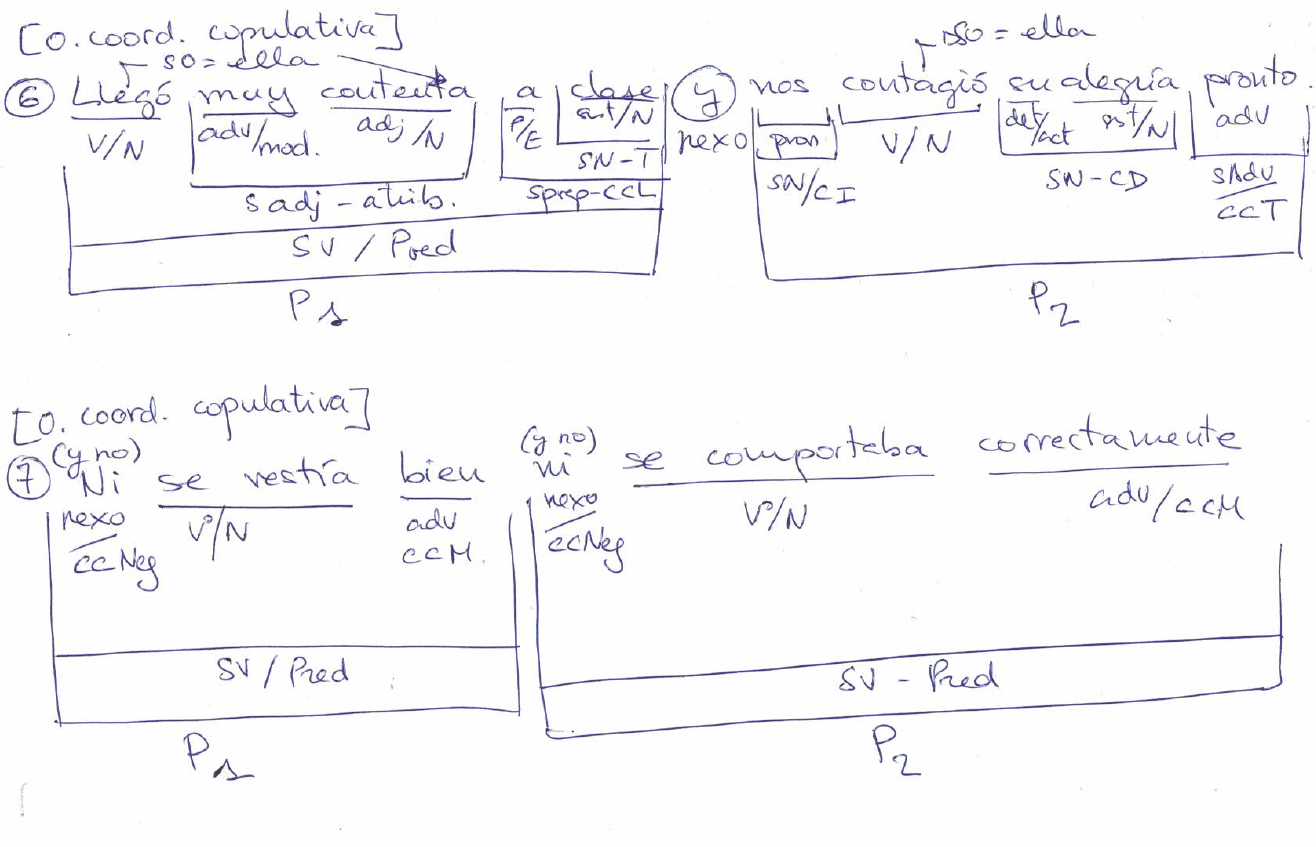 [O. coord. copulativa]
SO = ella
SO = ella
6 Llegó muy contenta a clase y nos contagió su alegría pronto.
V/N adv/mod. adj/N P/E sust/N nexo pron V/N det/act sust/N adv
SN-T
SN/CI SN-CD SAdv/CCT
S adj - atrib. Sprep-CCL
SV / Pred
P1 P2
[O. coord. copulativa]
(y no) (y no)
7 Ni se vestía bien ni se comportaba correctamente
nexo/CCNeg Vº/N adv CCM. nexo/CCNeg Vº/N adv/CCM
SV / Pred SV - Pred
P1 P2